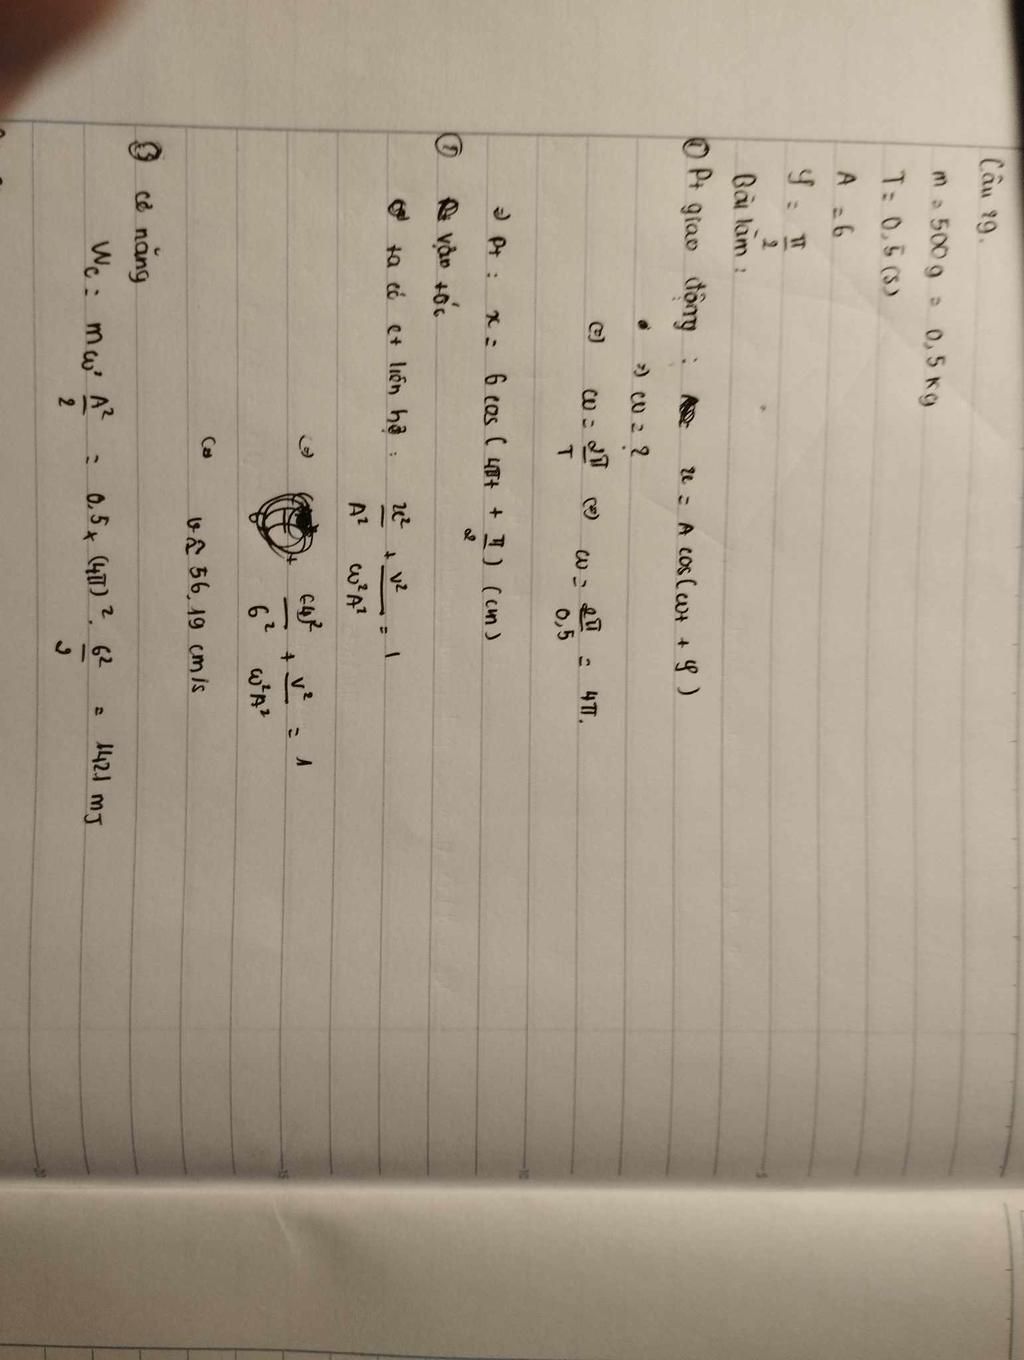 Câu 29.
m = 500g = 0,5 kg
T = 0,5 (s)
A = 6
φ = π/2
Bài làm :
① Pt giao động : x = A cos(ωt + φ)
=> ω = ?
(=) ω = 2π/T (=) ω = 2π/0,5 = 4π.
=) Pt : x = 6 cos( 4πt + π/2 ) (cm)
② vận tốc
ta có ct liên hệ : x²/A² + v²/ω²A² = 1
(=) (-4)²/6² + v²/ω²A² = 1
(=) v ≈ 56,19 cm/s
③ cơ năng
Wc = mω² A²/2 = 0,5 x (4π)² . 6²/2 = 1421 mJ